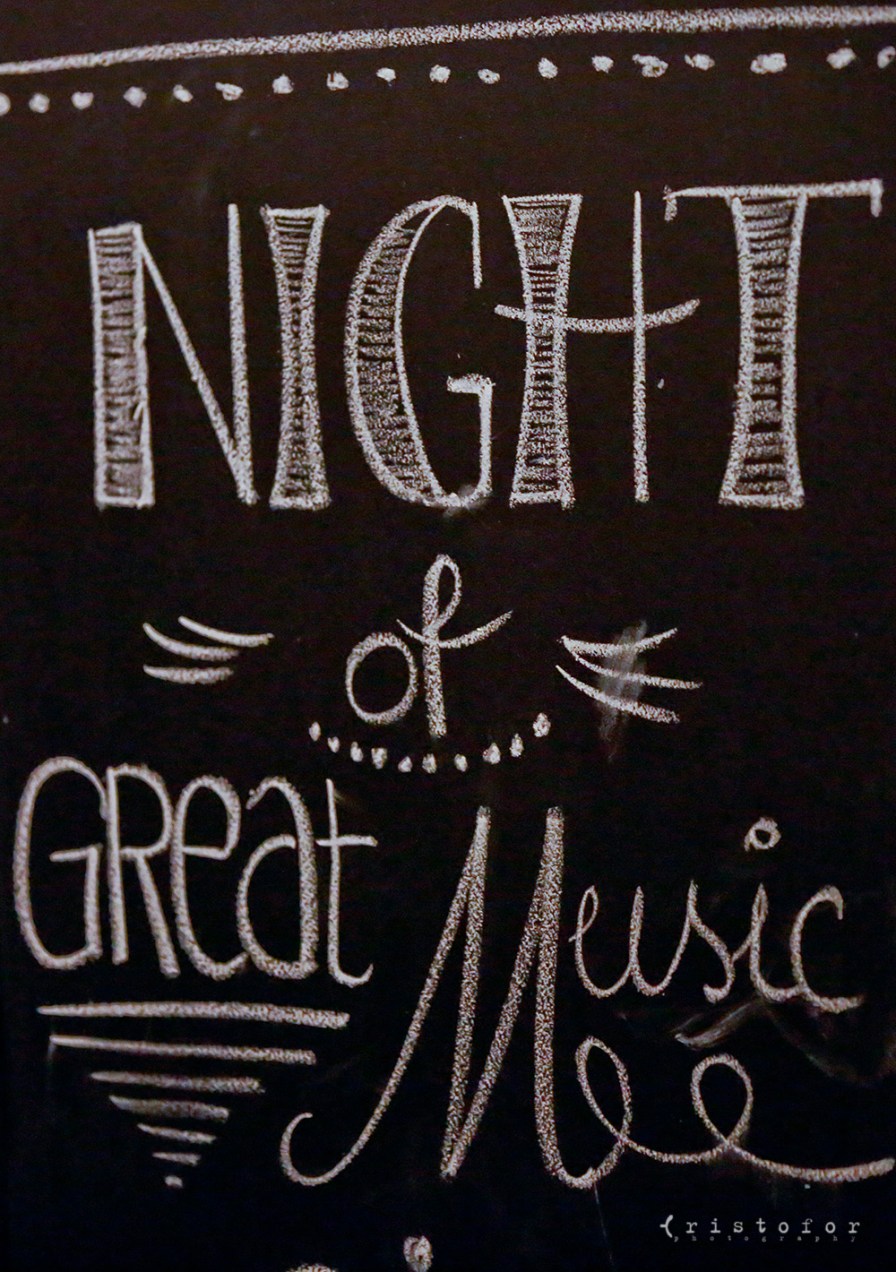 NIGHT
of
GReat Music
{ristofor
photography